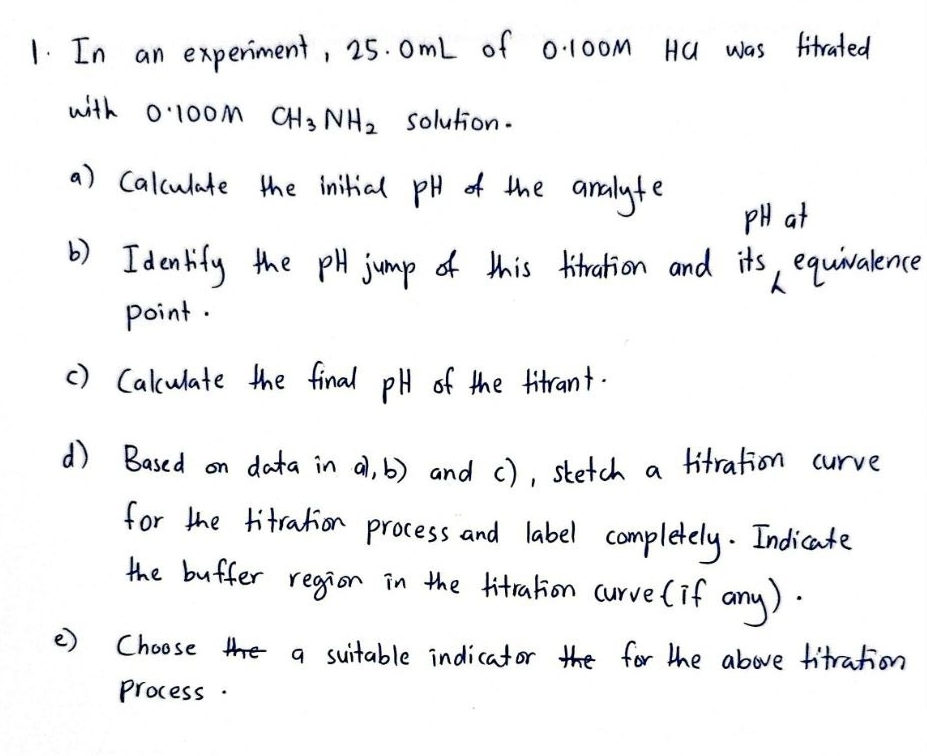 1. In an experiment, 25.0mL of 0.100M HCl was titrated
with 0.100M CH3NH2 solution.
a) Calculate the initial pH of the analyte
pH at
b) Identify the pH jump of this titration and its, equivalence
point.
c) Calculate the final pH of the titrant.
d) Based on data in a), b) and c), sketch a titration curve
for the titration process and label completely. Indicate
the buffer region in the titration curve (if any).
e) Choose the a suitable indicator the for the above titration
process.